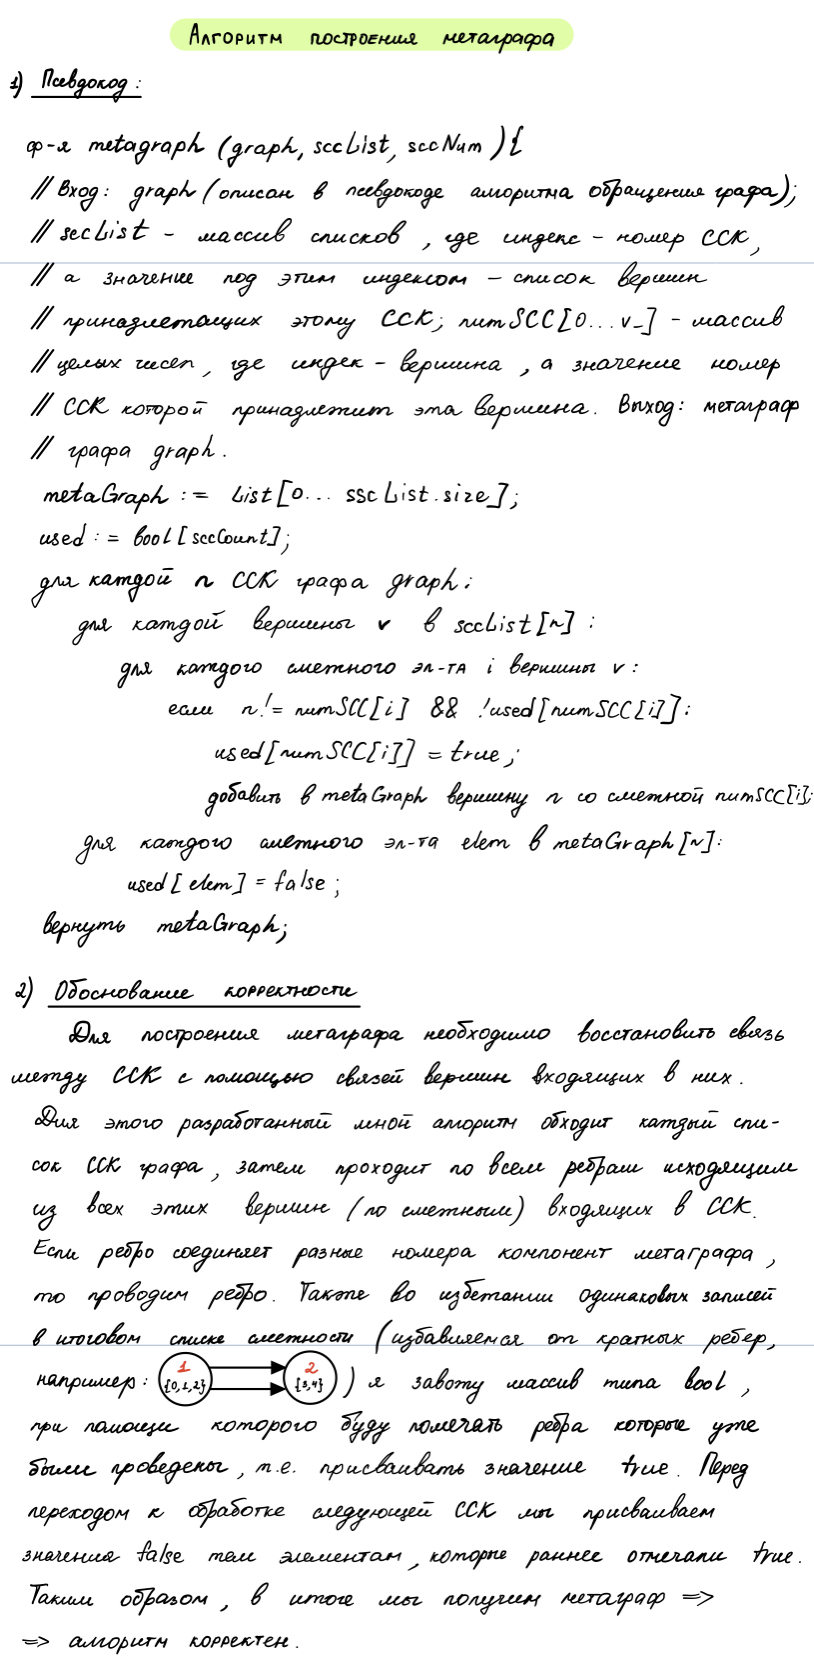 Алгоритм построения метаграфа
1) Псевдокод:
ф-я metagraph (graph, sccList, sccNum){
// Вход: graph (описан в псевдокоде алгоритма обращения графа);
// sccList - массив списков, где индекс - номер ССК,
// а значение под этим индексом - список вершин
// принадлежащих этому ССК; numSCC[0...v-] - массив
// целых чисел, где индек - вершина, а значение номер
// ССК которой принадлежит эта вершина. Выход: метаграф
// графа graph.
metaGraph := List[0... sscList.size];
used := bool[sccCount];
для каждой n ССК графа graph:
для каждой вершины v в sccList[n]:
для каждого смежного эл-та i вершины v:
если n != numSCC[i] && !used[numSCC[i]]:
used[numSCC[i]] = true;
добавить в metaGraph вершину n со смежной numSCC[i];
для каждого смежного эл-та elem в metaGraph[n]:
used[elem] = false;
вернуть metaGraph;
2) Обоснование корректности
Для построения метаграфа необходимо восстановить связь
между ССК с помощью связей вершин входящих в них.
Для этого разработанный мной алгоритм обходит каждый спи-
сок ССК графа, затем проходит по всем ребрам исходящим
из всех этих вершин (по смежным) входящих в ССК.
Если ребро соединяет разные номера компонент метаграфа,
то проводим ребро. Также во избежании одинаковых записей
в итоговом списке смежности (избавляемся от кратных ребер,
например: 1 {0,1,2} 2 {3,4} ) я завожу массив типа bool,
при помощи которого буду помечать ребра которые уже
были проведены, т.е. присваивать значение true. Перед
переходом к обработке следующей ССК мы присваиваем
значения false тем элементам, которые раннее отмечали true.
Таким образом, в итоге мы получим метаграф =>
=> алгоритм корректен.